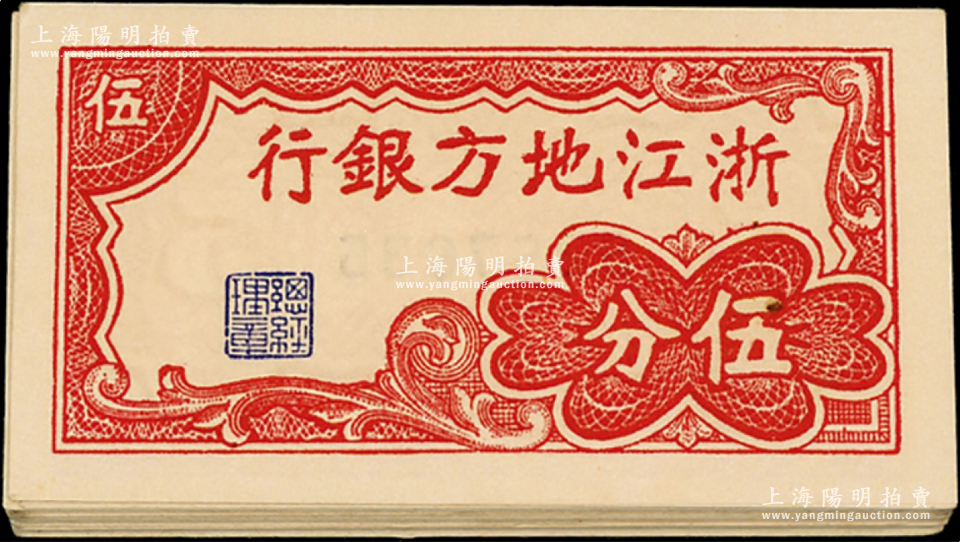 上海陽明拍賣
www.yangmingauction.com
伍
浙江地方銀行
上海陽明拍賣
www.yangmingauction.com
總經理章
伍分
上海陽明拍賣
www.yangmingauction.com